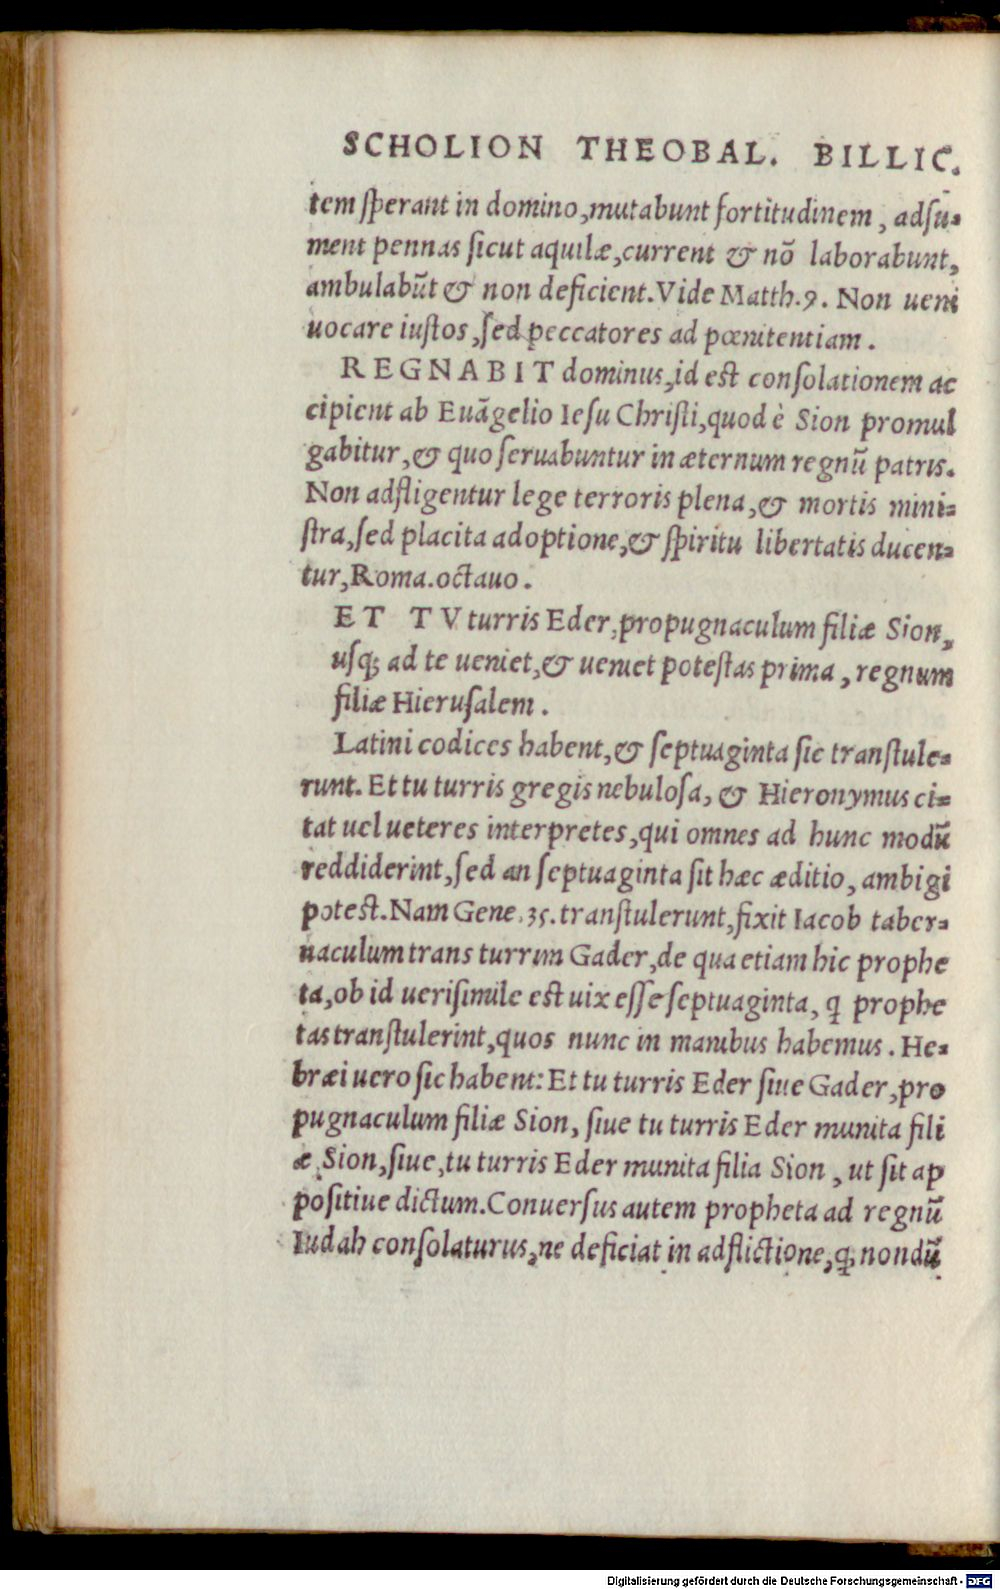 SCHOLION THEOBAL. BILLIC.
tem ſperant in domino, mutabunt fortitudinem, adſu-
ment pennas ſicut aquilæ, current & nõ laborabunt,
ambulabũt & non deficient. Vide Matth. 9. Non ueni
uocare iuſtos, ſed peccatores ad pœnitentiam.
REGNABIT dominus, id eſt conſolationem ac
cipient ab Euãgelio Ieſu Chriſti, quod è Sion promul
gabitur, & quo ſeruabuntur in æternum regnũ patris.
Non adfligentur lege terroris plena, & mortis mini-
ſtra, ſed placita adoptione, & ſpiritu libertatis ducen-
tur, Roma. octauo.
ET TV turris Eder, propugnaculum filiæ Sion,
uſq; ad te ueniet, & ueniet poteſtas prima, regnum
filiæ Hieruſalem.
Latini codices habent, & ſeptuaginta ſic tranſtule-
runt. Et tu turris gregis nebuloſa, & Hieronymus ci-
tat uel ueteres interpretes, qui omnes ad hunc modũ
reddiderint, ſed an ſeptuaginta ſit hæc æditio, ambigi
poteſt. Nam Gene. 35. tranſtulerunt, fixit Iacob taber-
naculum trans turrim Gader, de qua etiam hic prophe
ta, ob id ueriſimile eſt uix eſſe ſeptuaginta, q prophe
tas tranſtulerint, quos nunc in manibus habemus. He-
bræi uero ſic habent: Et tu turris Eder ſiue Gader, pro
pugnaculum filiæ Sion, ſiue tu turris Eder munita fili
æ Sion, ſiue, tu turris Eder munita filia Sion, ut ſit ap
poſitiue dictum. Conuerſus autem propheta ad regnũ
Iudah conſolaturus, ne deficiat in adflictione, q; nondũ
Digitalisierung gefördert durch die Deutsche Forschungsgemeinschaft - DFG